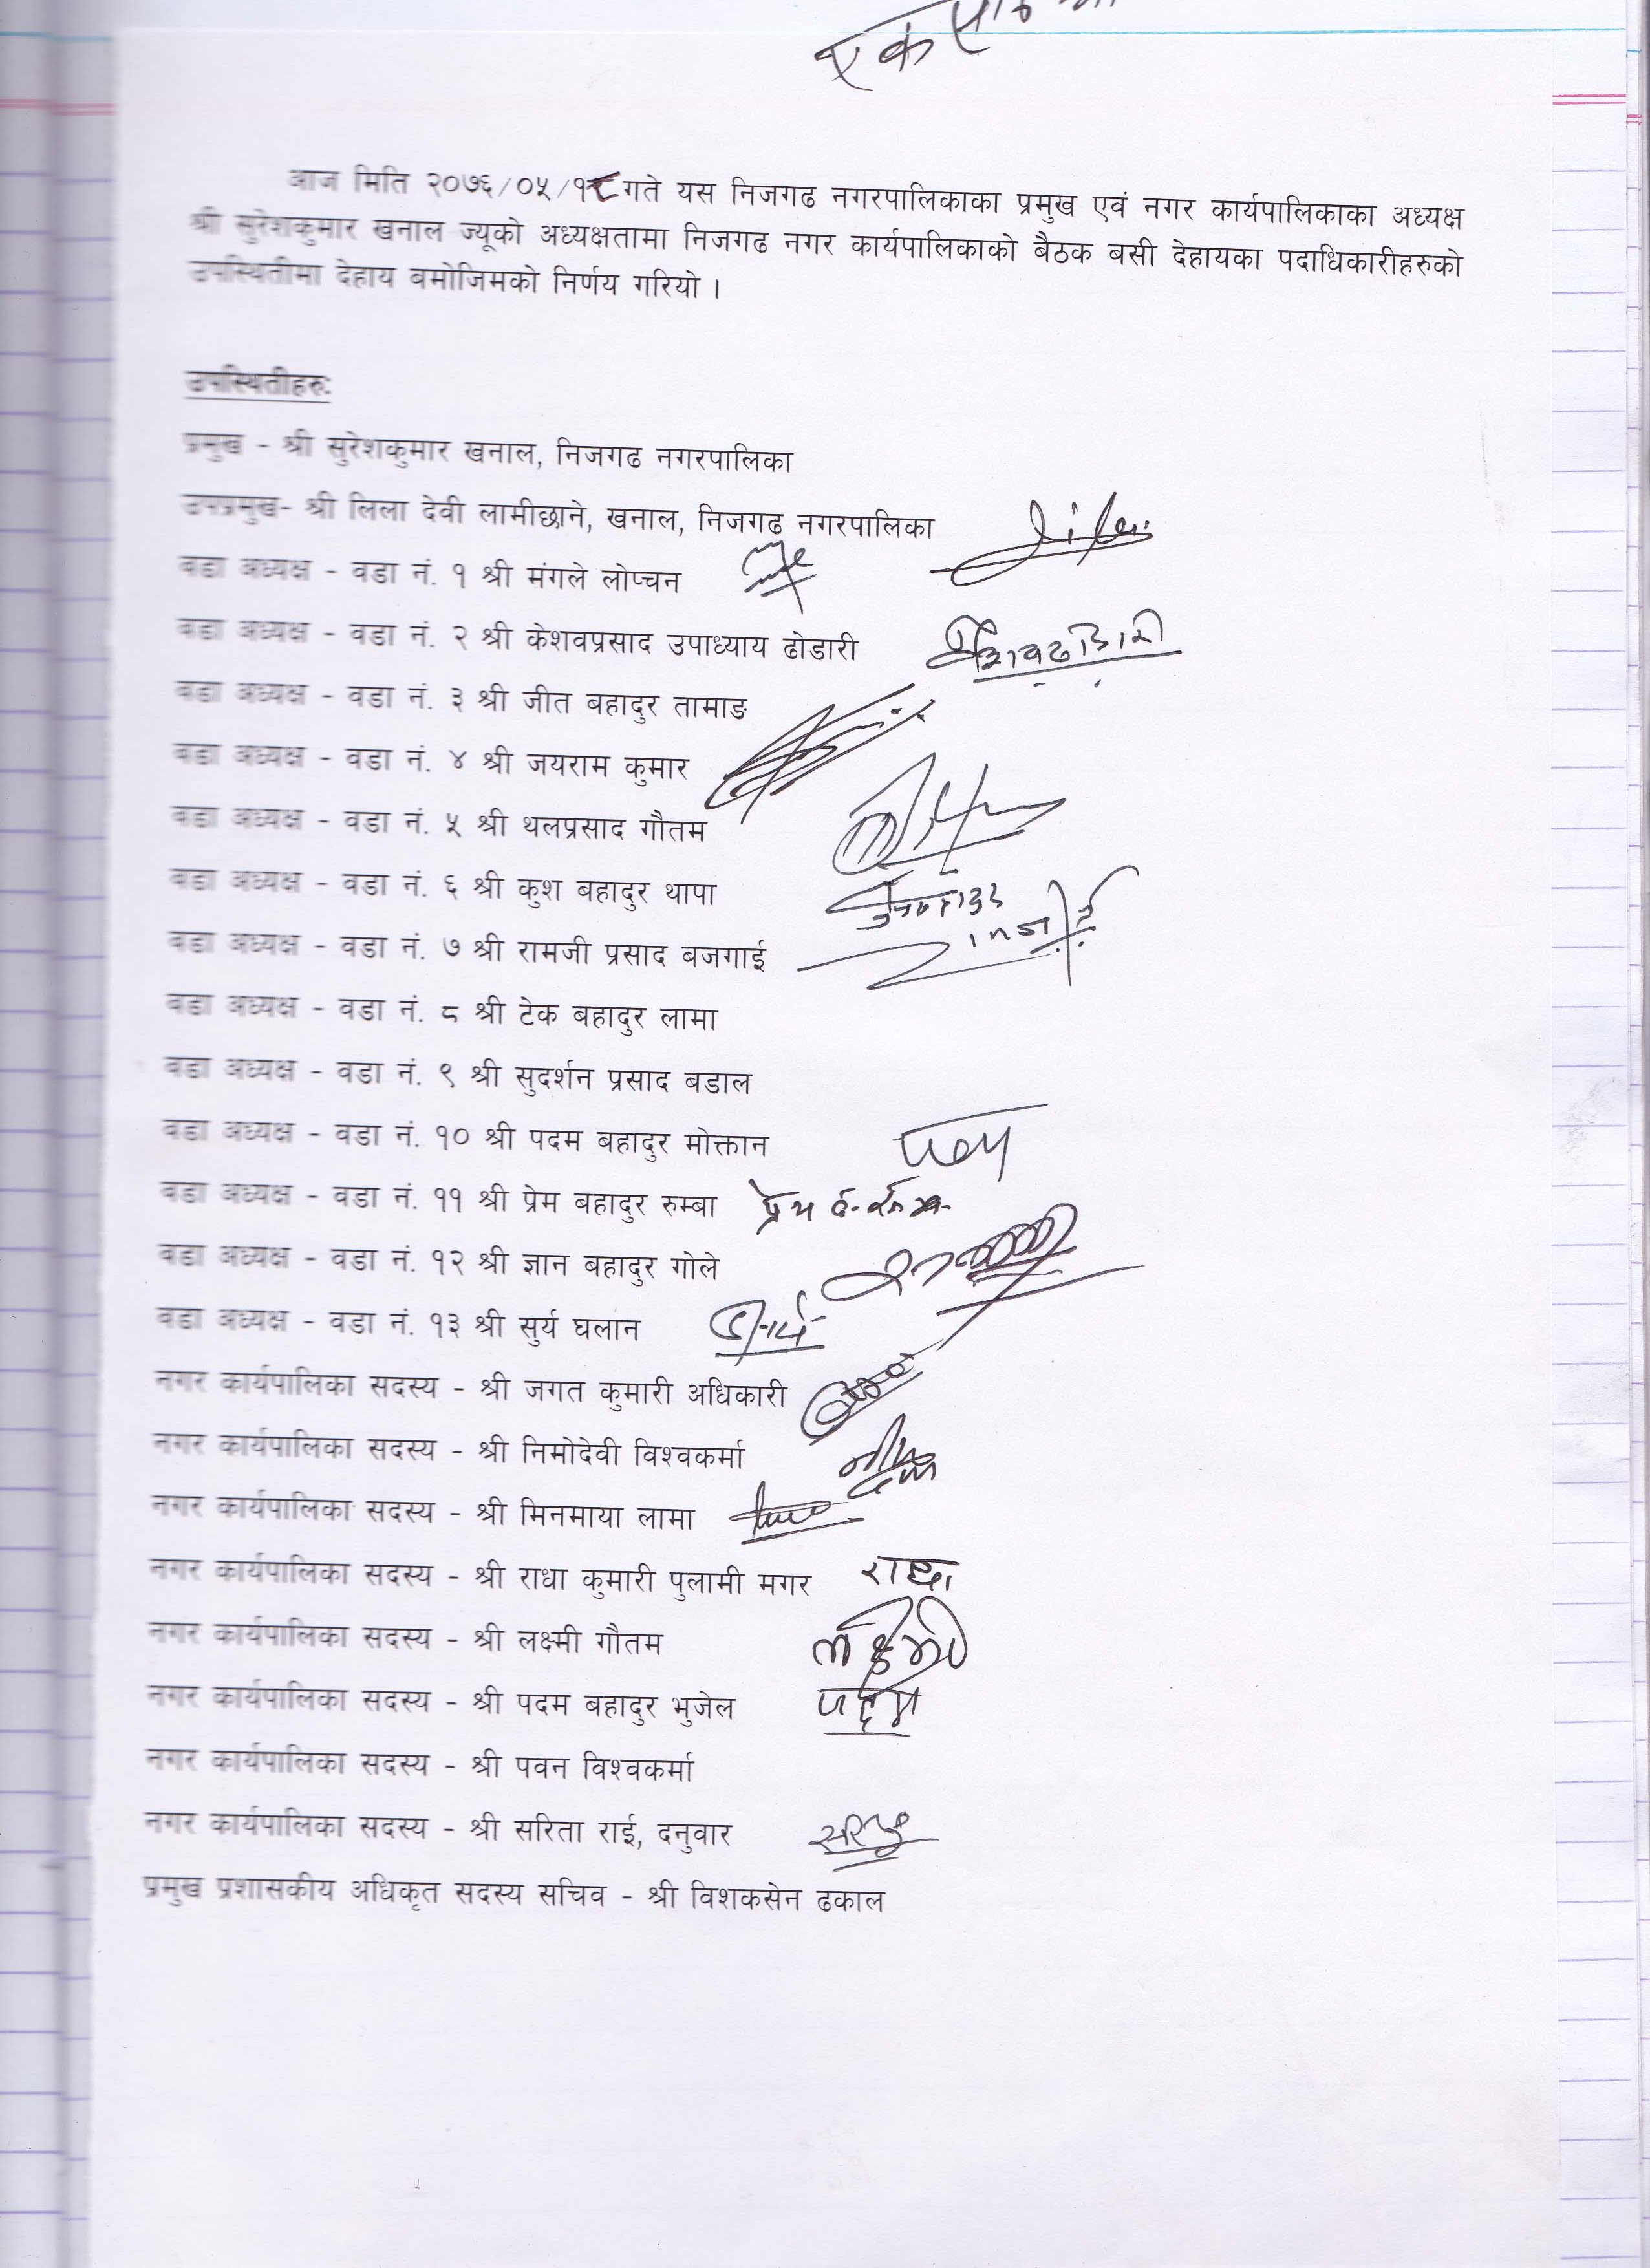 एक
आज मिति २०७६/०५/१८ गते यस निजगढ नगरपालिकाका प्रमुख एवं नगर कार्यपालिकाका अध्यक्ष
श्री सुरेशकुमार खनाल ज्यूको अध्यक्षतामा निजगढ नगर कार्यपालिकाको बैठक बसी देहायका पदाधिकारीहरुको
उपस्थितीमा देहाय बमोजिमको निर्णय गरियो ।
उपस्थितीहरुः
प्रमुख - श्री सुरेशकुमार खनाल, निजगढ नगरपालिका
उपप्रमुख- श्री लिला देवी लामीछाने, खनाल, निजगढ नगरपालिका
वडा अध्यक्ष - वडा नं. १ श्री मंगले लोप्चन
वडा अध्यक्ष - वडा नं. २ श्री केशवप्रसाद उपाध्याय ढोडारी
वडा अध्यक्ष - वडा नं. ३ श्री जीत बहादुर तामाङ
वडा अध्यक्ष - वडा नं. ४ श्री जयराम कुमार
वडा अध्यक्ष - वडा नं. ५ श्री थलप्रसाद गौतम
वडा अध्यक्ष - वडा नं. ६ श्री कुश बहादुर थापा
वडा अध्यक्ष - वडा नं. ७ श्री रामजी प्रसाद बजगाई
वडा अध्यक्ष - वडा नं. ८ श्री टेक बहादुर लामा
वडा अध्यक्ष - वडा नं. ९ श्री सुदर्शन प्रसाद बडाल
वडा अध्यक्ष - वडा नं. १० श्री पदम बहादुर मोक्तान
वडा अध्यक्ष - वडा नं. ११ श्री प्रेम बहादुर रुम्बा प्रेम
वडा अध्यक्ष - वडा नं. १२ श्री ज्ञान बहादुर गोले
वडा अध्यक्ष - वडा नं. १३ श्री सुर्य घलान
नगर कार्यपालिका सदस्य - श्री जगत कुमारी अधिकारी
नगर कार्यपालिका सदस्य - श्री निमोदेवी विश्वकर्मा
नगर कार्यपालिका सदस्य - श्री मिनमाया लामा
नगर कार्यपालिका सदस्य - श्री राधा कुमारी पुलामी मगर राधा
नगर कार्यपालिका सदस्य - श्री लक्ष्मी गौतम लक्ष्मी
नगर कार्यपालिका सदस्य - श्री पदम बहादुर भुजेल पदम
नगर कार्यपालिका सदस्य - श्री पवन विश्वकर्मा
नगर कार्यपालिका सदस्य - श्री सरिता राई, दनुवार
प्रमुख प्रशासकीय अधिकृत सदस्य सचिव - श्री विशकसेन ढकाल